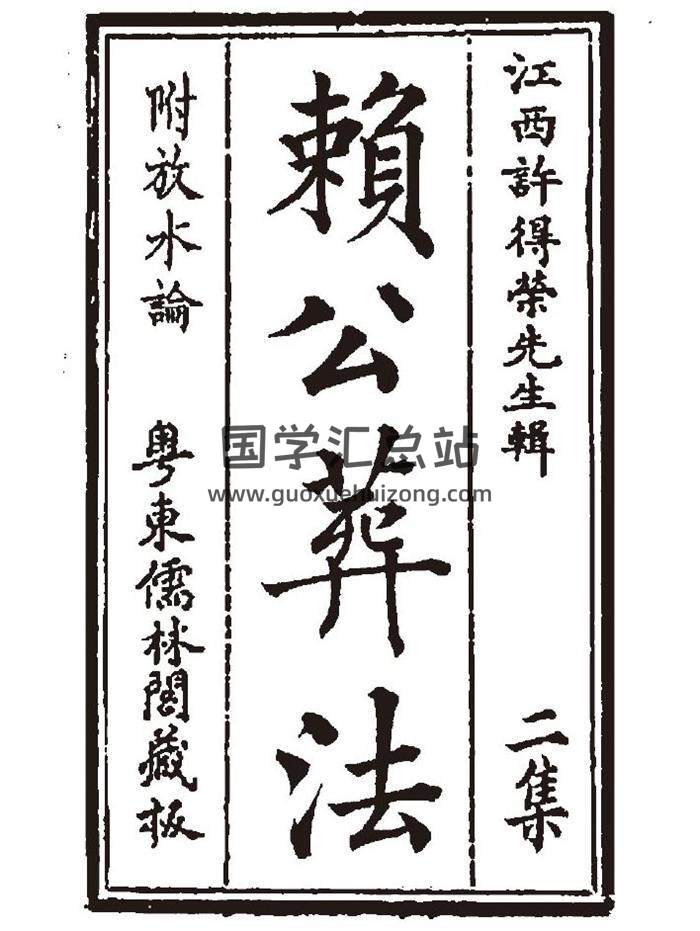 江西許得榮先生輯 二集
賴公葬法
附放水論 粤東儒林閣藏板
国学汇总站
www.guoxuehuizong.com